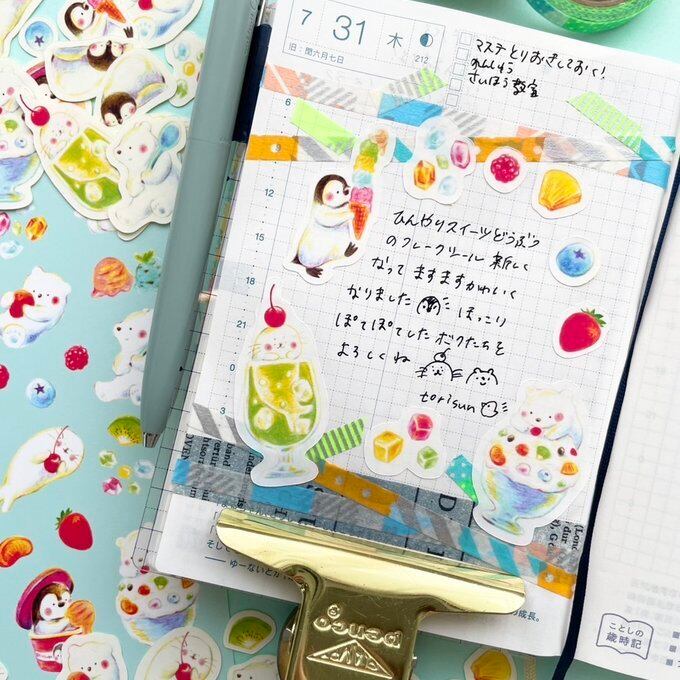 7 31 木
旧：閏六月七日
212
マステとりおきしておく！
のんしゅう
さいほう教室
6
9
12
15
18
21
0
3
ひんやりスイーツどうぶつ
のフレークシール 新しく
なって ますますかわいく
なりました ほっこり
ぽてぽてしたボクたちを
よろしくね
torisun
penco
ことしの
歳時記